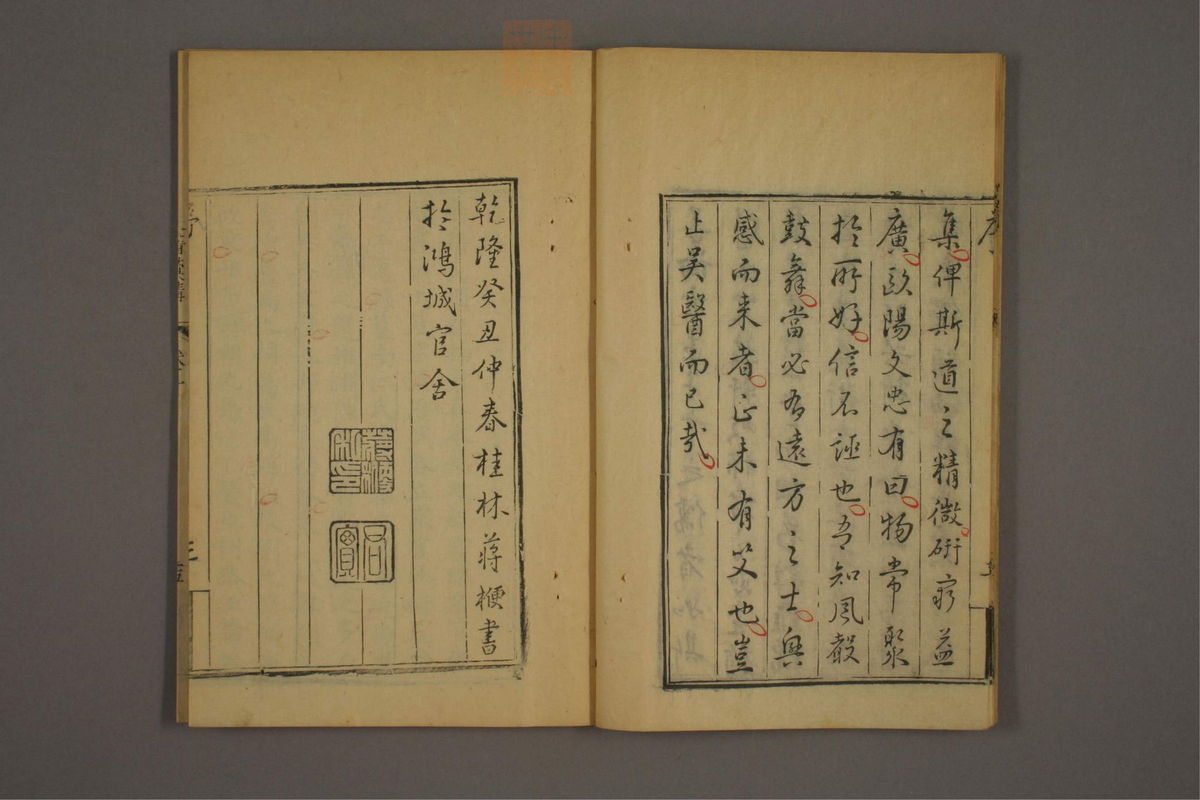 集俾斯道之精微研窮益
廣歐陽文忠有曰物常聚
於所好信不誣也吾知風聲
鼓舞當必有遠方之士興
感而來者正未有艾也豈
止吳醫而已哉
乾隆癸丑仲春桂林蔣楩書
於鴻城官舍